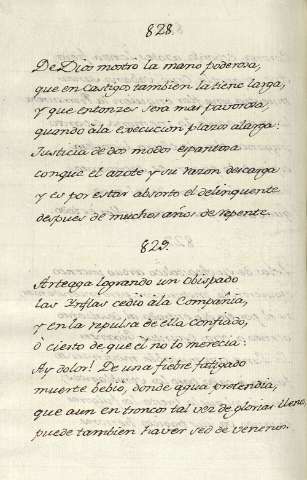 828.
De Dios mostrò la mano poderosa,
que en castigos tambien la tiene larga,
y que entonzes será mas pavorosa,
quando à la execucion plazos alarga:
Justicia de dos modos espantosa
conque el azote y su razon descarga
y es por estar absorto el delinquente
despues de muchos años de repente.
829.
Arteaga logrando un Obispado
las Inflas cediò à la Compañia,
y en la repulsa de ella confiado,
ò cierto de que èl no lo merecia:
Ay dolor! De una fiebre fatigado
muerte bebiò, donde agua pretendia,
que aun en troncos tal vez de glorias llenos,
puede tambien haver sed de venenos.